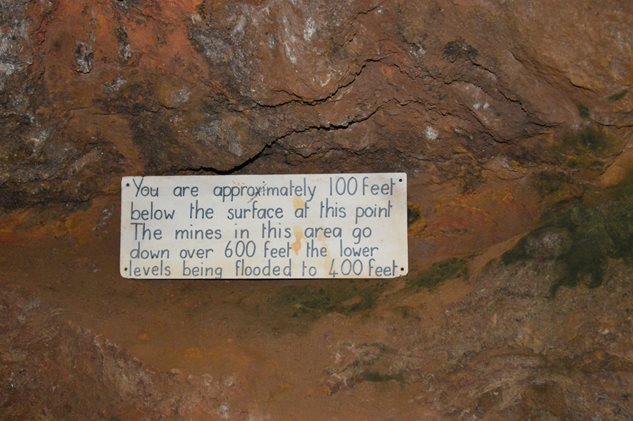 You are approximately 100 feet
below the surface at this point
The mines in this area go
down over 600 feet the lower
levels being flooded to 400 feet